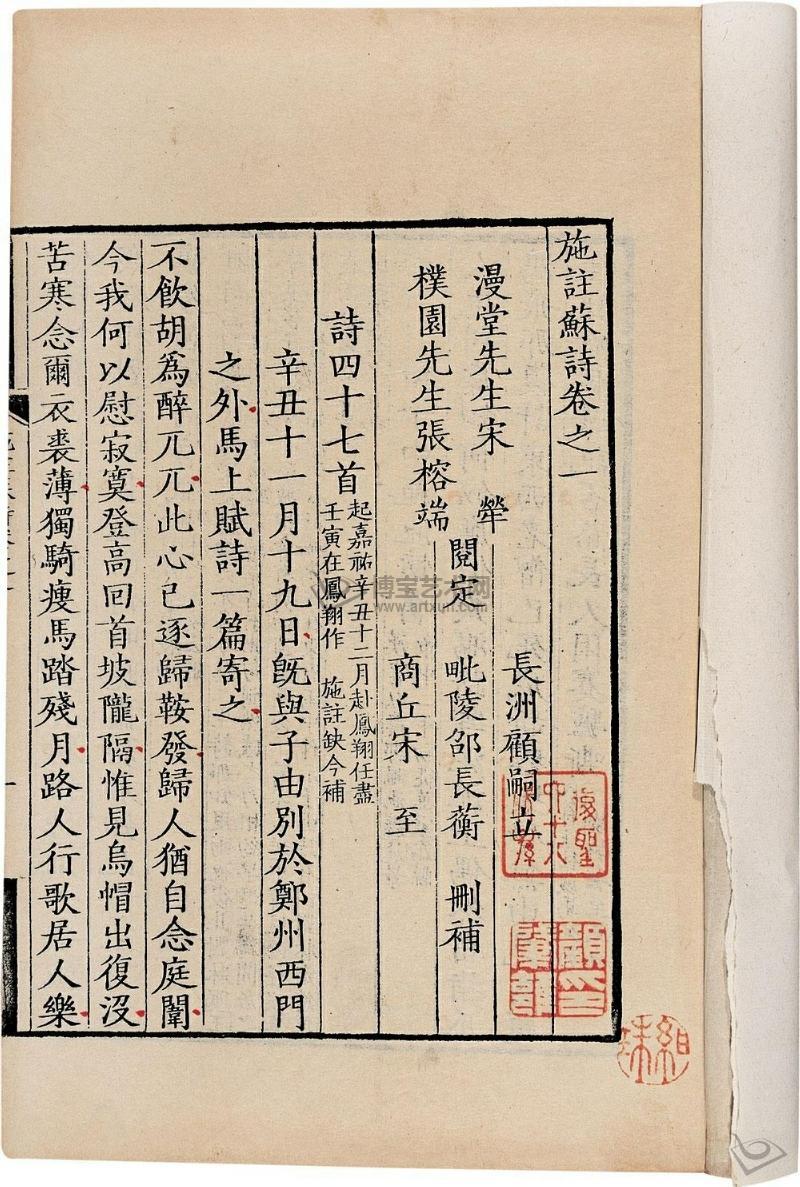 施註蘇詩卷之一
漫堂先生宋犖
樸園先生張榕端
閱定
長洲顧嗣立
毗陵邵長蘅
商丘宋至
刪補
詩四十七首
起嘉祐辛丑十二月赴鳳翔任盡
壬寅在鳳翔作 施註缺今補
辛丑十一月十九日既與子由別於鄭州西門
之外馬上賦詩一篇寄之
不飲胡爲醉兀兀此心已逐歸鞍發歸人猶自念庭闈
今我何以慰寂寞登高回首坡隴隔惟見烏帽出復沒
苦寒念爾衣裘薄獨騎瘦馬踏殘月路人行歌居人樂
博宝艺术网
www.artxun.com